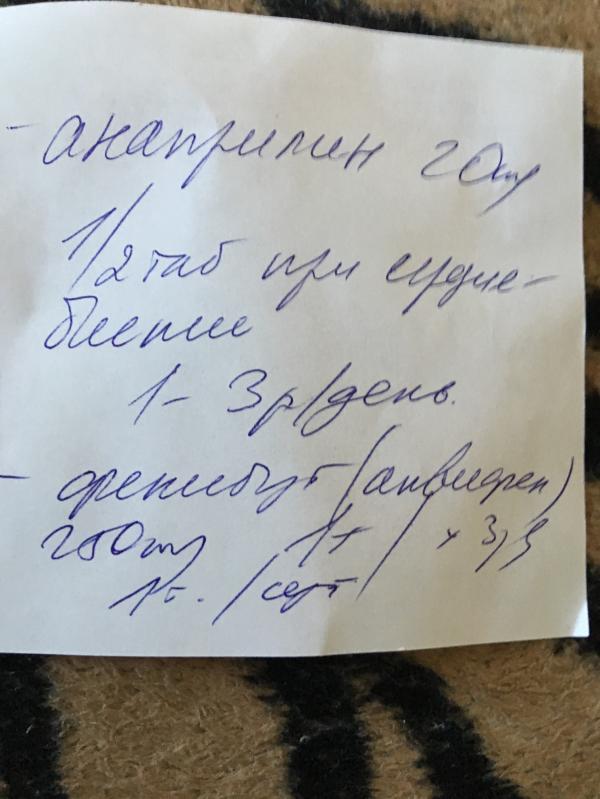 - анаприлин 20мг
1/2 таб при сердце-
биении
1- 3 р/день.
- фенибут (анвифен)
250мг 1т / х 3 р/д
1т. /